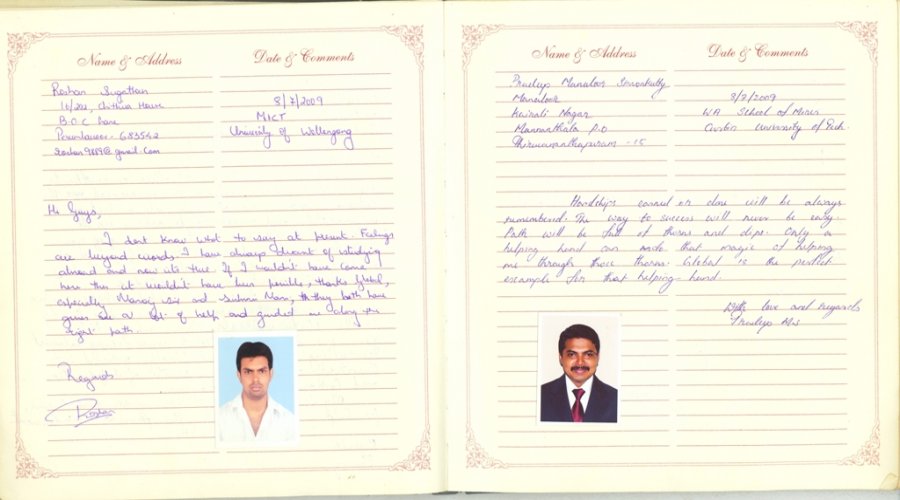 Name & Address
Date & Comments
Roshan Sugathan
16/202, Chithira House
B.O.C Lane
Perumbavoor - 683542
roshan9889@gmail.com
8/7/2009
MICT
University of Wollongong
Hi Guys,
I dont know what to say at present. Feelings
are beyond words. I have always dreamt of studying
abroad and now its true. If I wouldn't have come
here this it wouldn't have been possible, thanks Global,
especially Manoj sir and Mam, they both have
given me a lot of help and guided me along the
right path.
Regards
Roshan
Name & Address
Date & Comments
Pradeep Manaloor
Manaloor
Kairali Nagar
Mannanthala P.O
Thiruvananthapuram - 15
8/7/2009
WA School of Mines
Curtin University of Tech.
Hardships earned or done will be always
remembered. The way to success will never be easy.
Path will be full of thorns and dips. Only a
helping hand can make that magic of helping
me through those thorns. Global is the perfect
example for that helping hand.
With love and regards
Pradeep M.S